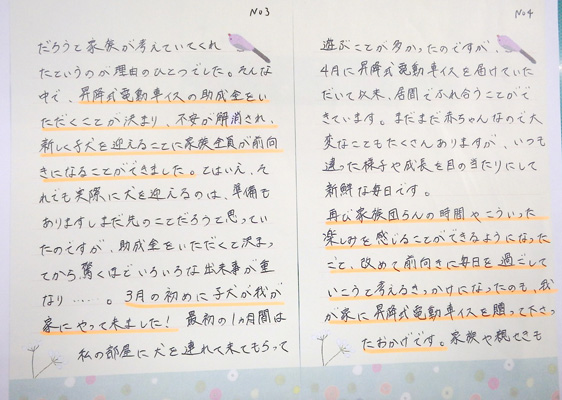 No3
だろうと家族が考えていてくれ
たというのが理由のひとつでした。そんな
中で、昇降式電動車イスの助成金をい
ただくことが決まり、不安が解消され、
新しく子犬を迎えることに家族全員が前向
きになることができました。とはいえ、そ
れでも実際に犬を迎えるのは、準備も
ありますしまだ先のことだろうと思ってい
たのですが、助成金をいただくと決まっ
てから、驚くほどいろいろな出来事が重
なり……。3月の初めに子犬が我が
家にやって来ました！ 最初の1ヵ月間は
私の部屋に犬を連れて来てもらって
No4
遊ぶことが多かったのですが、
4月に昇降式電動車イスを届けていた
だいて以来、居間でふれ合うことがで
きています。まだまだ赤ちゃんなので大
変なこともたくさんありますが、いつも
違った様子や成長を目の当たりにして
新鮮な毎日です。
再び家族団らんの時間やこういった
楽しみを感じることができるようになった
こと、改めて前向きに毎日を過ごして
いこうと考えるきっかけになったのも、我
が家に昇降式電動車イスを贈って下さっ
たおかげです。家族や親せきも